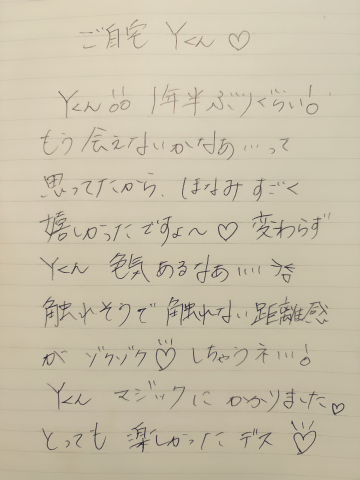 ご自宅 Yくん♡
Yくん 1年半ぶりぐらい!
もう会えないかなぁ…って
思ってたから、ほなみすごく
嬉しかったですょ〜♡ 変わらず
Yくん 色気あるなぁ‥‥
触れそうで触れない距離感
が ゾクゾク♡しちゃうネ…!
Yくん マジックにかかりました♡
とっても 楽しかったデス♡